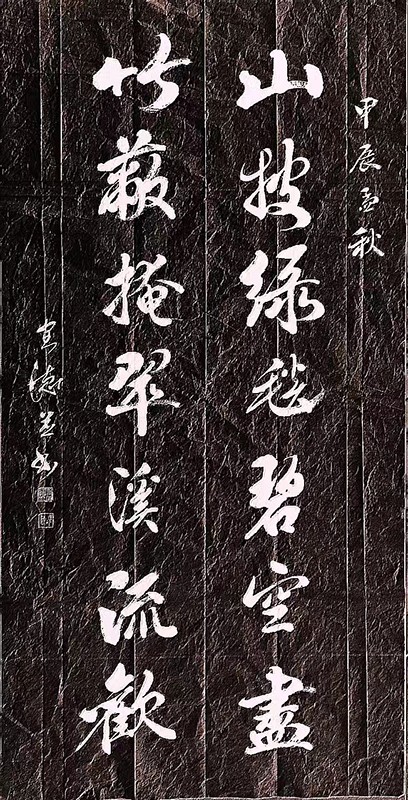 甲辰孟秋
山披绿毯碧空尽
竹蔽掩翠溪流歡
宜德益书